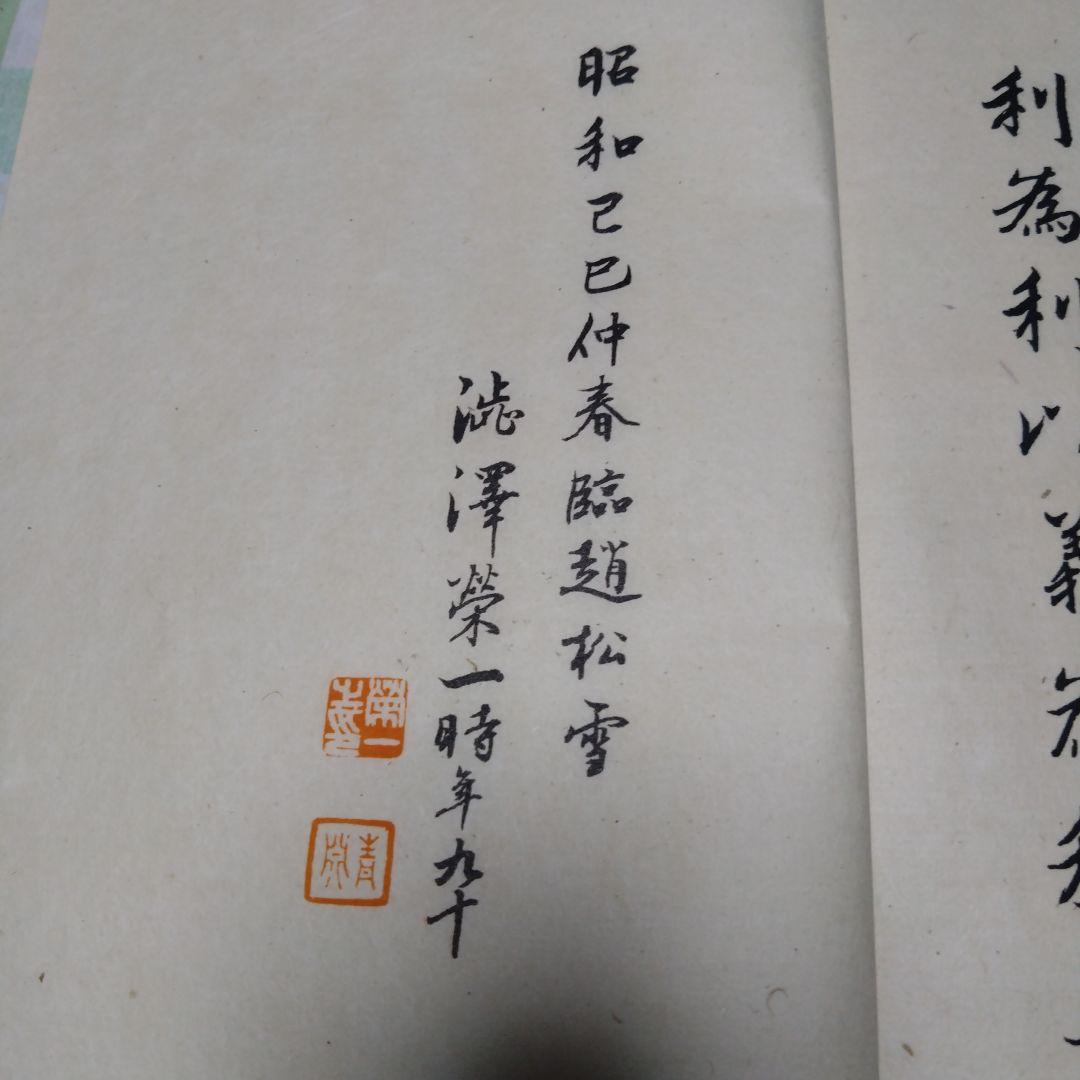 利為利以義為利
昭和己巳仲春臨趙松雪
澁澤榮一時年九十
榮一
青淵